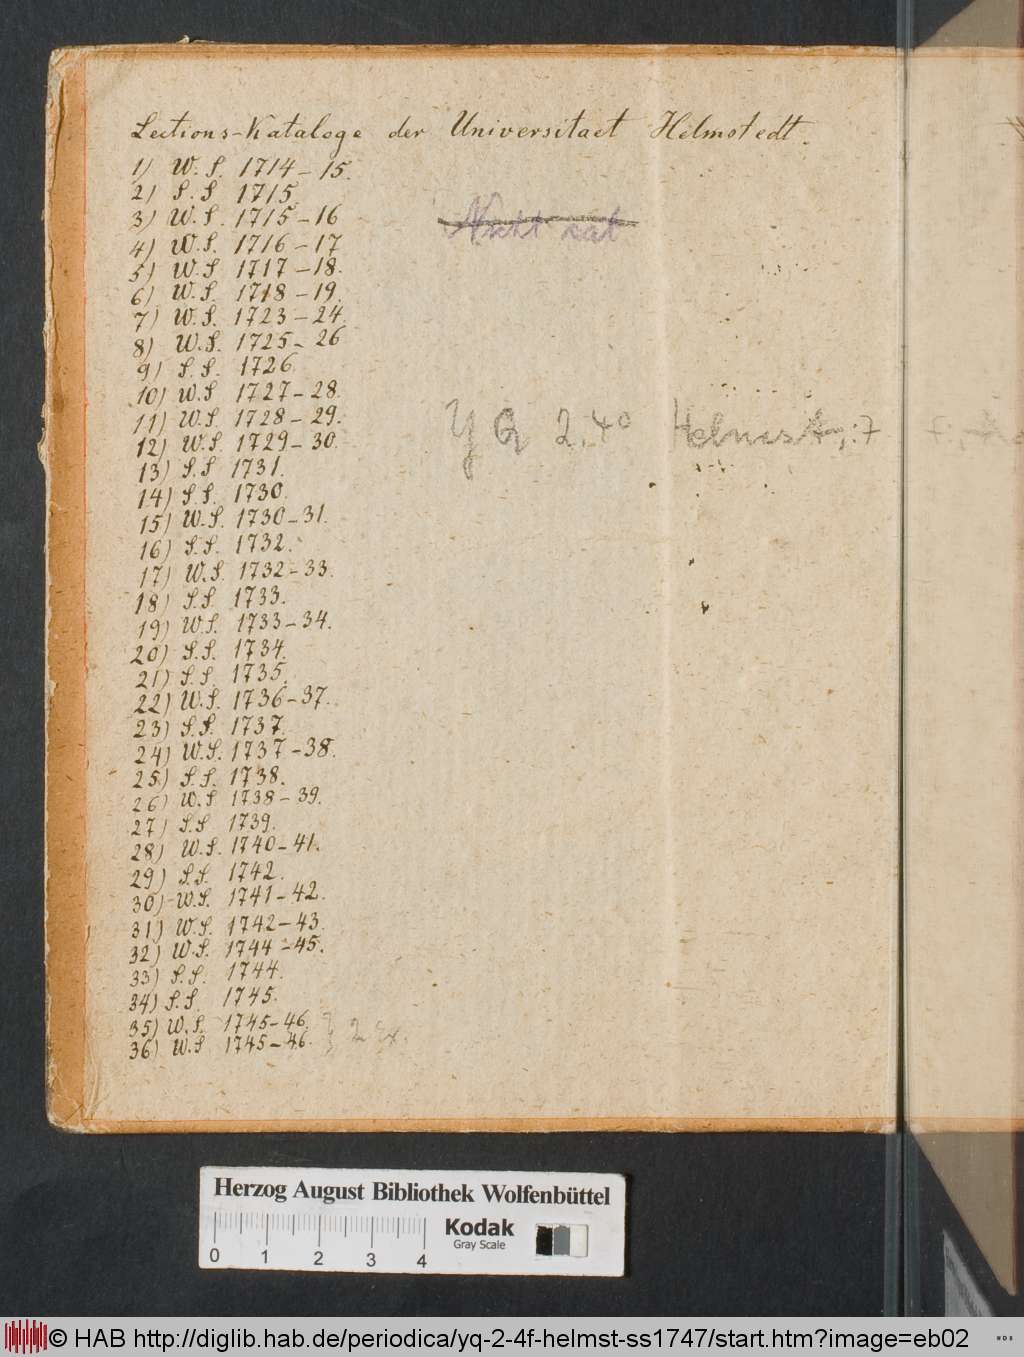 Lections-Kataloge der Universitaet Helmstedt.
1) W. S. 1714-15.
2) S. S 1715.
3) W. S. 1715-16
4) W. S. 1716-17
5) W. S 1717-18.
6) W. S. 1718-19.
7) W. S. 1723-24.
8) W. S. 1725-26
9) S. S. 1726.
10) W. S 1727-28.
11) W. S. 1728-29.
12) W. S. 1729-30.
13) S. S 1731.
14) S. S. 1730.
15) W. S. 1730-31.
16) S. S. 1732.
17) W. S. 1732-33.
18) S. S. 1733.
19) W. S. 1733-34.
20) S. S. 1734.
21) S. S. 1735.
22) W. S. 1736-37.
23) S. S. 1737.
24) W. S. 1737-38.
25) S. S. 1738.
26) W. S 1738-39.
27) S. S 1739.
28) W. S. 1740-41.
29) S. S. 1742.
30) W. S. 1741-42.
31) W. S. 1742-43.
32) W. S. 1744-45.
33) S. S. 1744.
34) S. S. 1745.
35) W. S. 1745-46.
36) W. S 1745-46. } 2 Ex.
Nicht kat
YQ 2.4° Helmst.;:7
Herzog August Bibliothek Wolfenbüttel
0 1 2 3 4
Kodak
Gray Scale
© HAB http://diglib.hab.de/periodica/yq-2-4f-helmst-ss1747/start.htm?image=eb02
WDB